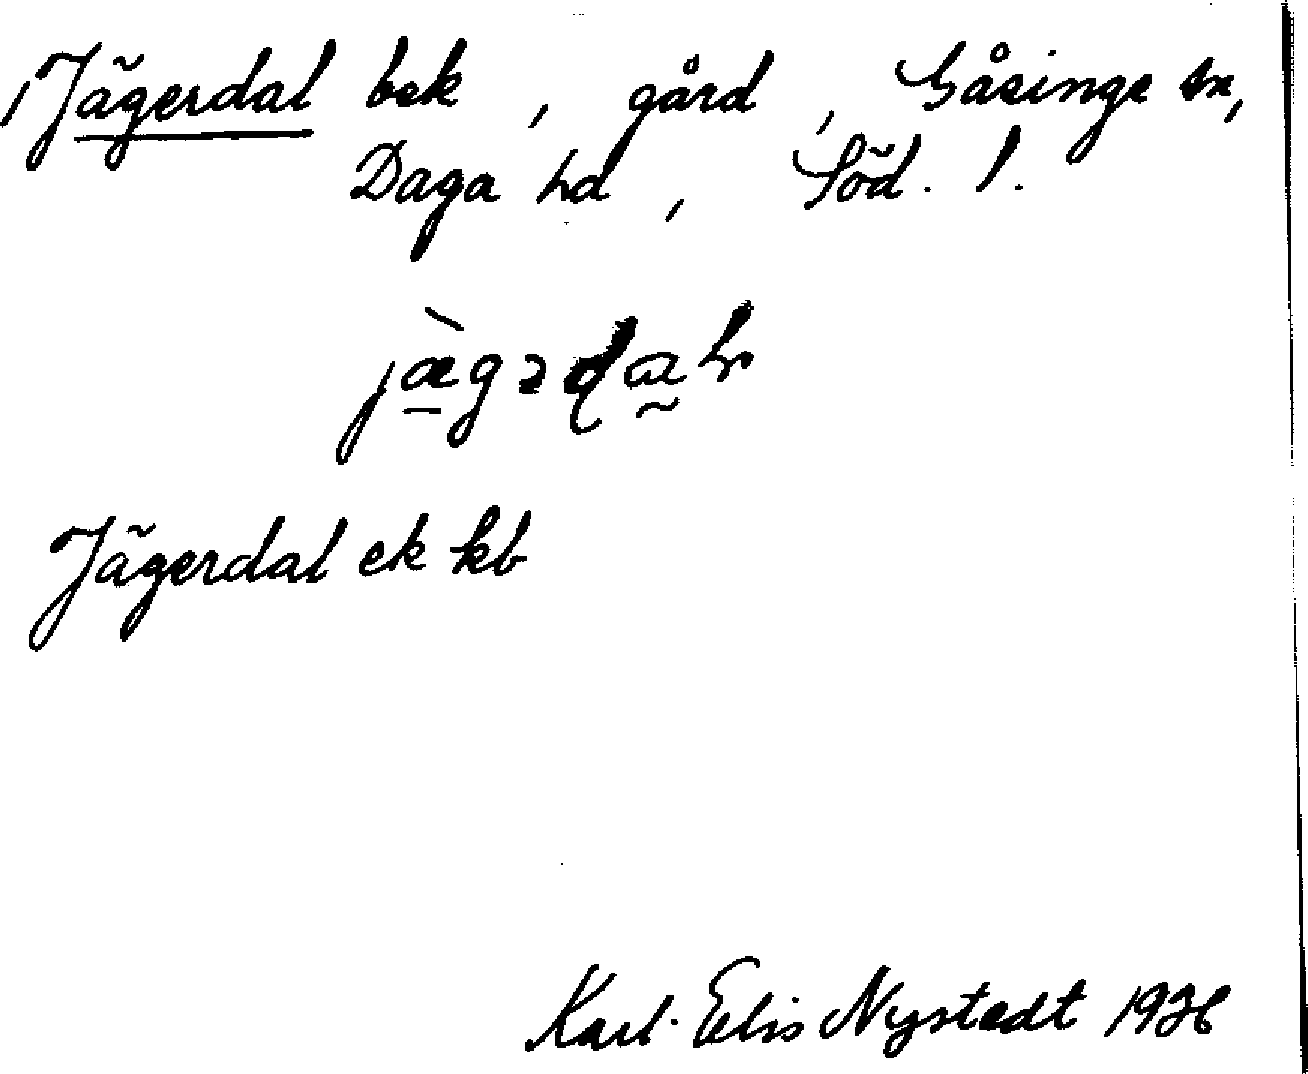 Jägerdal bek, gård, Gåsinge sn,
Daga hd, Söd. l.
Jägerdal ek kb
Karl-Elis Nystedt 1936